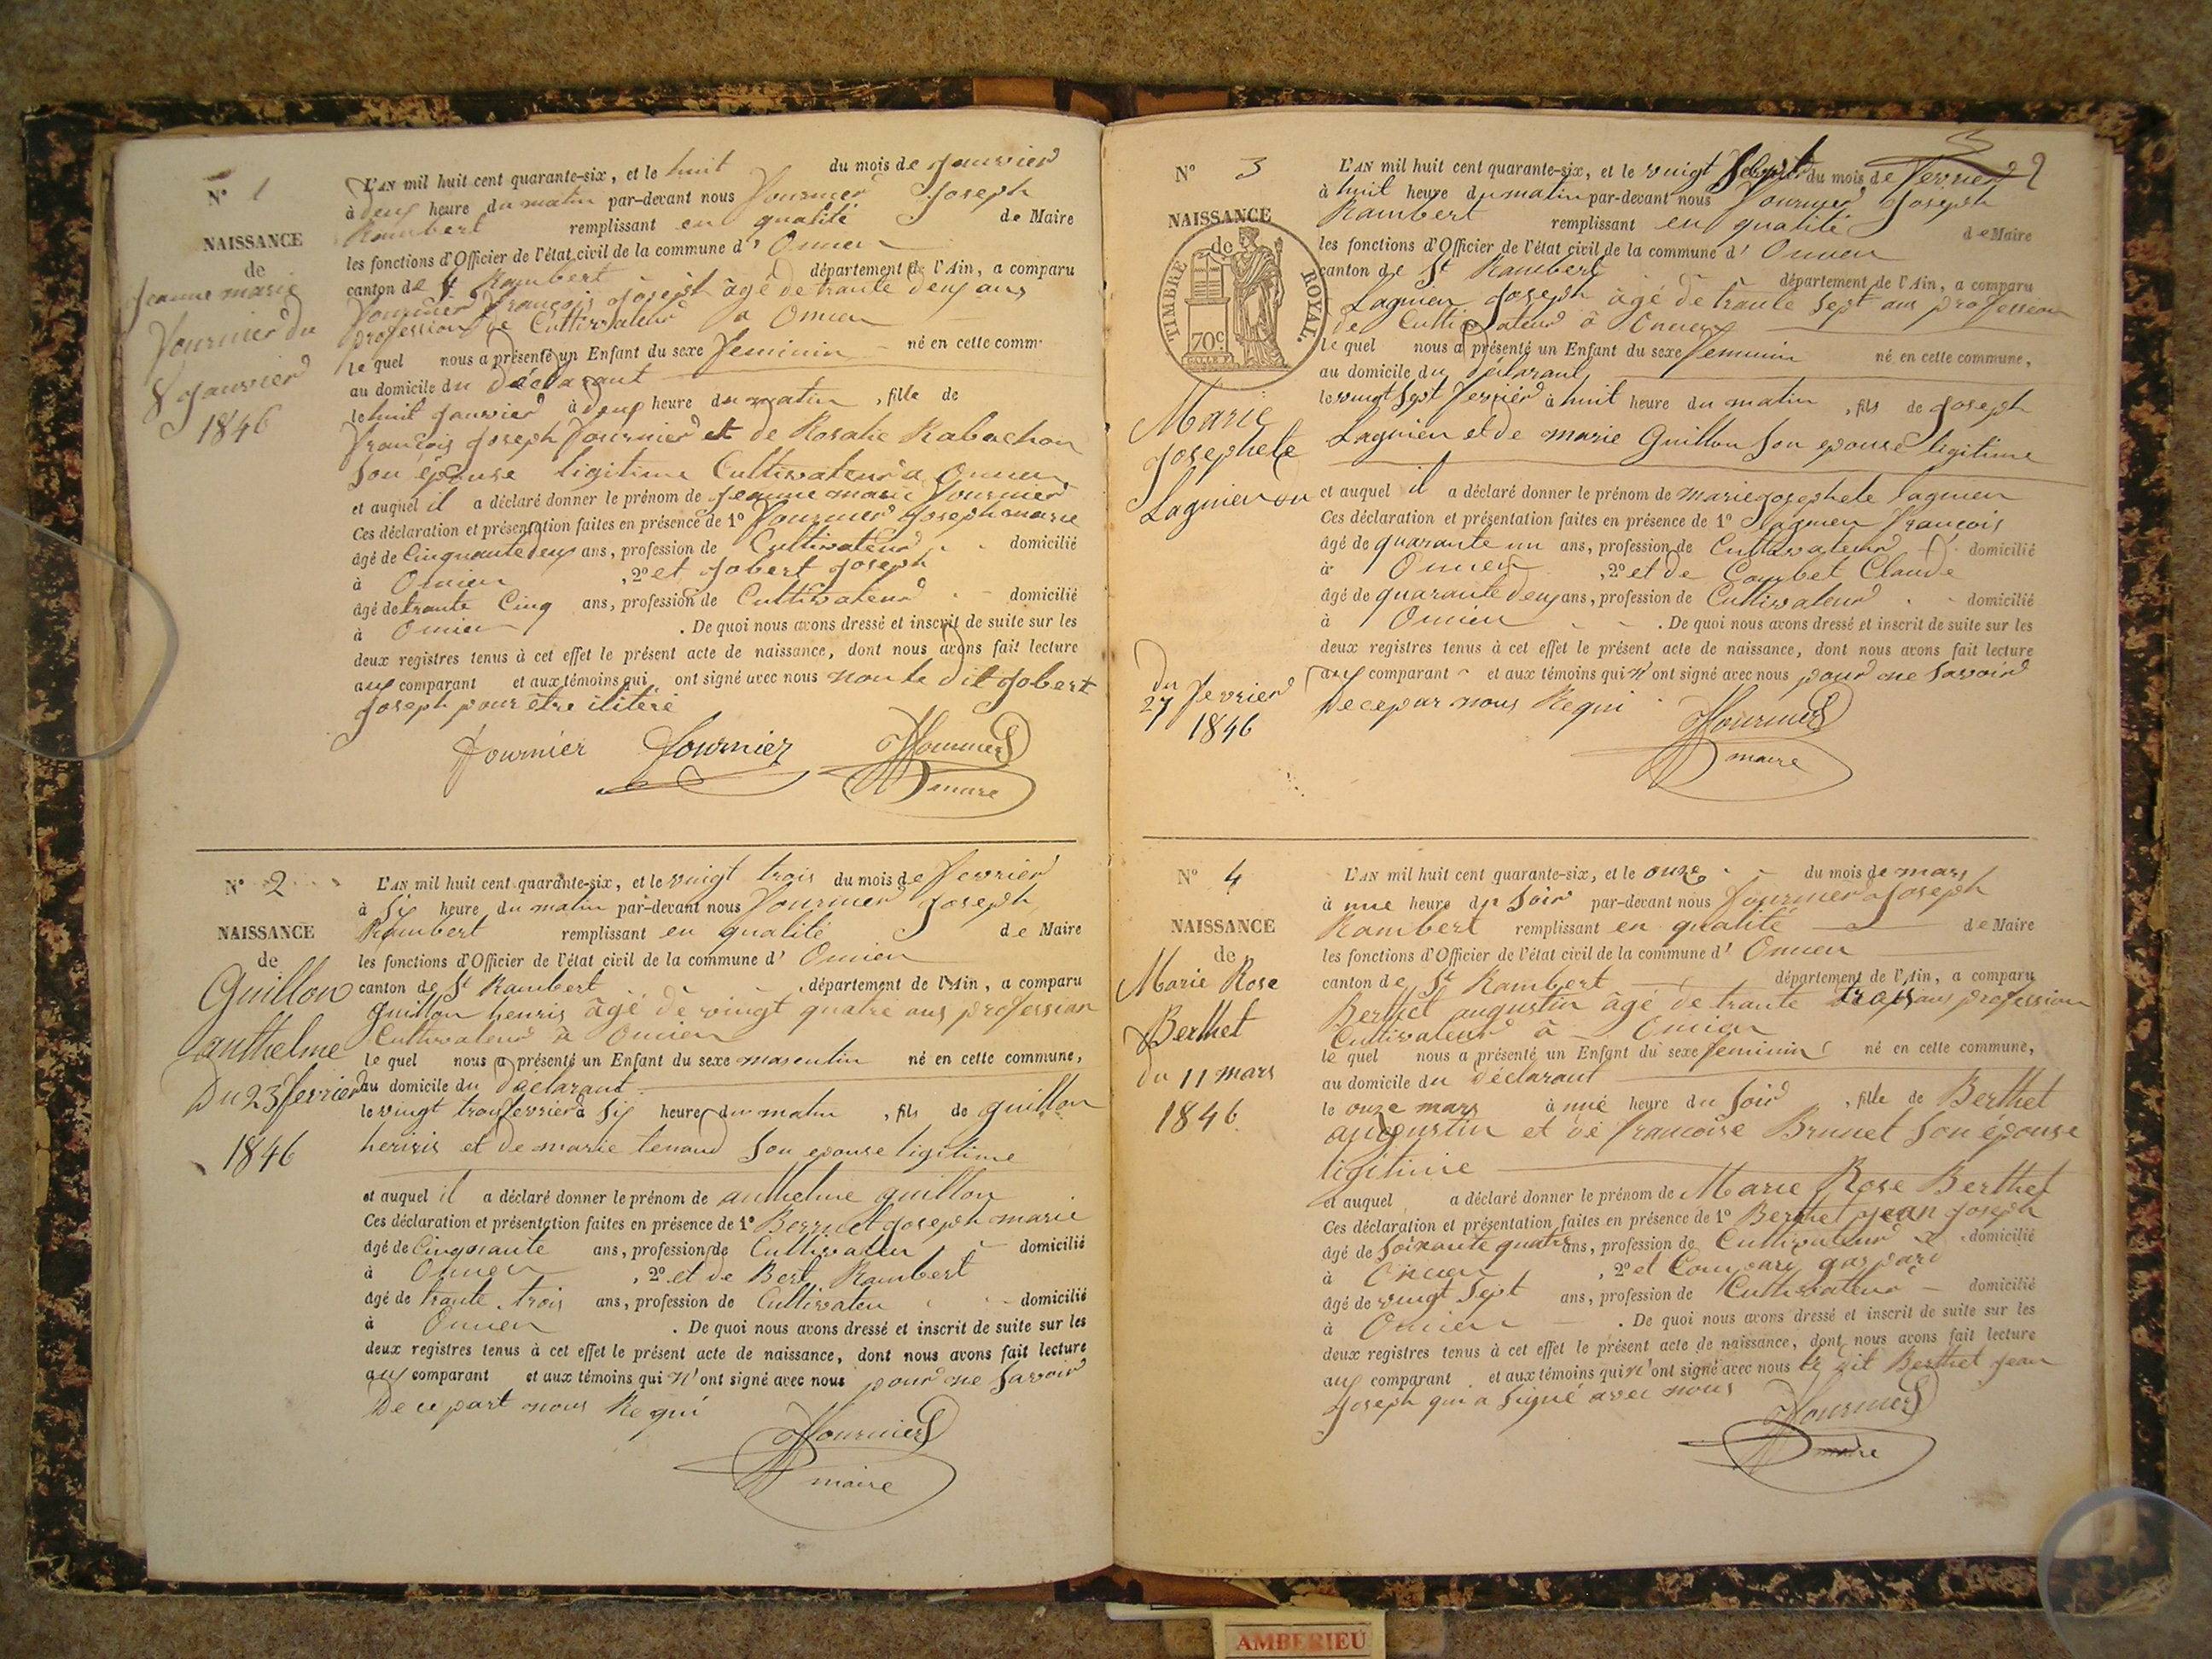 N° 1
NAISSANCE
de
Jeanne marie
Fournier du
8 janvier
1846
L'AN mil huit cent quarante-six, et le huit du mois de janvier
à deux heure du matin par-devant nous Fournier Joseph
Rambert remplissant en qualité de Maire
les fonctions d'Officier de l'état civil de la commune d' Oncieu
canton de St Rambert département de l'Ain, a comparu
Fournier François Joseph âgé de trante deux ans
profession de Cultivateur a Oncieu
le quel nous a présenté un Enfant du sexe feminin né en cette comm.
au domicile du déclarant
le huit janvier à deux heure du matin, fille de
François Joseph Fournier et de Rosalie Rabachon
son épouse ligitime Cultivateur a Oncieu
et auquel il a déclaré donner le prénom de jeanne marie Fournier
Ces déclaration et présentation faites en présence de 1° Fournier Joseph marie
âgé de Cinquante deux ans, profession de Cultivateur domicilié
à Oncieu, 2° et Jobert Joseph
âgé de trante Cinq ans, profession de Cultivateur domicilié
à Oncieu. De quoi nous avons dressé et inscrit de suite sur les
deux registres tenus à cet effet le présent acte de naissance, dont nous avons fait lecture
aux comparant et aux témoins qui ont signé avec nous non le dit Jobert
Joseph pour être ilitéré
Fournier Fournier JRFournier
maire
N° 2
NAISSANCE
de
Guillon
anthelme
Du 23 fevrier
1846
L'AN mil huit cent quarante-six, et le vingt trois du mois de fevrier
à six heure du matin par-devant nous Fournier Joseph
Rambert remplissant en qualité de Maire
les fonctions d'Officier de l'état civil de la commune d' Oncieu
canton de St Rambert, département de l'Ain, a comparu
Guillon henris âgé de vingt quatre ans profession
Cultivateur à Oncieu
le quel nous a présenté un Enfant du sexe masculin né en cette commune,
au domicile du déclarant
le vingt trois fevrier à six heure du matin, fils de guillon
herisis et de marie tenand son epouse ligitime
et auquel il a déclaré donner le prénom de anthelme guillon
Ces déclaration et présentation faites en présence de 1° Joseph marie
âgé de Cinquante ans, profession de Cultivateu domicilié
à Oncieu, 2° et de Bert Rambert
âgé de trante trois ans, profession de Cultivateu domicilié
à Oncieu. De quoi nous avons dressé et inscrit de suite sur les
deux registres tenus à cet effet le présent acte de naissance, dont nous avons fait lecture
aux comparant et aux témoins qui n'ont signé avec nous pour ne savoir
De ce part nous Requi
JRFournier
maire
3
2
N° 3
NAISSANCE
de
TIMBRE ROYAL.
70c.
Marie
Josephete
Lagnieu du
du
27 fevrier
1846
L'AN mil huit cent quarante-six, et le vingt Sebpt du mois de Fevrier
à huit heure du matin par-devant nous Fournier Joseph
Rambert remplissant en qualité de Maire
les fonctions d'Officier de l'état civil de la commune d' Oncieu
canton de St Rambert département de l'Ain, a comparu
Lagnieu Joseph âgé de trante sept ans profession
de Cultivateur à Oncieu
le quel nous a présenté un Enfant du sexe feminin né en cette commune,
au domicile du déclarant
le vingt Sept Fevrier à huit heure du matin, fils de Joseph
Lagnieu et de marie Guillon son epouse legitime
et auquel il a déclaré donner le prénom de marie josephete lagnieu
Ces déclaration et présentation faites en présence de 1° Lagnieu François
âgé de quarante un ans, profession de Cultivateur domicilié
à Oncieu, 2° et de Combet Claude
âgé de quarante deux ans, profession de Cultivateur domicilié
à Oncieu. De quoi nous avons dressé et inscrit de suite sur les
deux registres tenus à cet effet le présent acte de naissance, dont nous avons fait lecture
aux comparant et aux témoins qui n'ont signé avec nous pour ne savoir
De ce par nous Requi
JRFournier
maire
N° 4
NAISSANCE
de
Marie Rose
Berthet
Du 11 mars
1846
L'AN mil huit cent quarante-six, et le onze du mois de mars
à une heure du soir par-devant nous Fournier Joseph
Rambert remplissant en qualité de Maire
les fonctions d'Officier de l'état civil de la commune d' Oncieu
canton de St Rambert département de l'Ain, a comparu
Berthet augustin âgé de trante trois ans profession
Cultivateur à Oncieu
le quel nous a présenté un Enfant du sexe feminin né en cette commune,
au domicile du déclarant
le onze mars à une heure du soir, fille de Berthet
augustin et de francoise Brunet son épouse
ligitime
et auquel a déclaré donner le prénom de Marie Rose Berthet
Ces déclaration et présentation faites en présence de 1° Berthet jean joseph
âgé de soixante quatre ans, profession de Cultivateur domicilié
à Oncieu, 2° et gaspard
âgé de vingt Sept ans, profession de Cultivateur domicilié
à Oncieu. De quoi nous avons dressé et inscrit de suite sur les
deux registres tenus à cet effet le présent acte de naissance, dont nous avons fait lecture
aux comparant et aux témoins qui n'ont signé avec nous le dit Berthet jean
Joseph qui a signé avec nous
JRFournier
maire
AMBERIEU